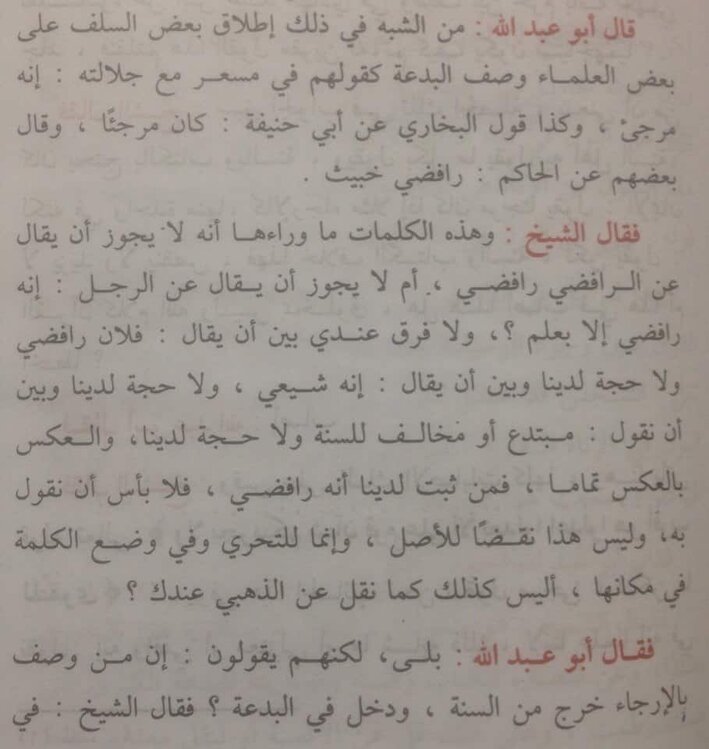 قال أبو عبد الله : من الشبه في ذلك إطلاق بعض السلف على
بعض العلماء وصف البدعة كقولهم في مسعر مع جلالته : إنه
مرجئ ، وكذا قول البخاري عن أبي حنيفة : كان مرجئًا ، وقال
بعضهم عن الحاكم : رافضي خبيث .
فقال الشيخ : وهذه الكلمات ما وراءها أنه لا يجوز أن يقال
عن الرافضي رافضي ، أم لا يجوز أن يقال عن الرجل : إنه
رافضي إلا بعلم ؟، ولا فرق عندي بين أن يقال : فلان رافضي
ولا حجة لدينا وبين أن يقال : إنه شيعي ، ولا حجة لدينا وبين
أن نقول : مبتدع أو مخالف للسنة ولا حجة لدينا، والعكس
بالعكس تماما ، فمن ثبت لدينا أنه رافضي ، فلا بأس أن نقول
به، وليس هذا نقضًا للأصل ، وإنما للتحري وفي وضع الكلمة
في مكانها ، أليس كذلك كما نقل عن الذهبي عندك ؟
فقال أبو عبد الله : بلى، لكنهم يقولون : إن من وصف
بالإرجاء خرج من السنة ، ودخل في البدعة ؟ فقال الشيخ : في